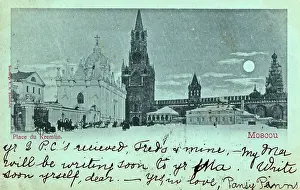 Place du Kremlin.
Moscou
yr 2 P.C's recieved, Freds & mine, - My Mar
will be writing soon to yr Ma. Write
soon yrself dear. - Yrs in love,